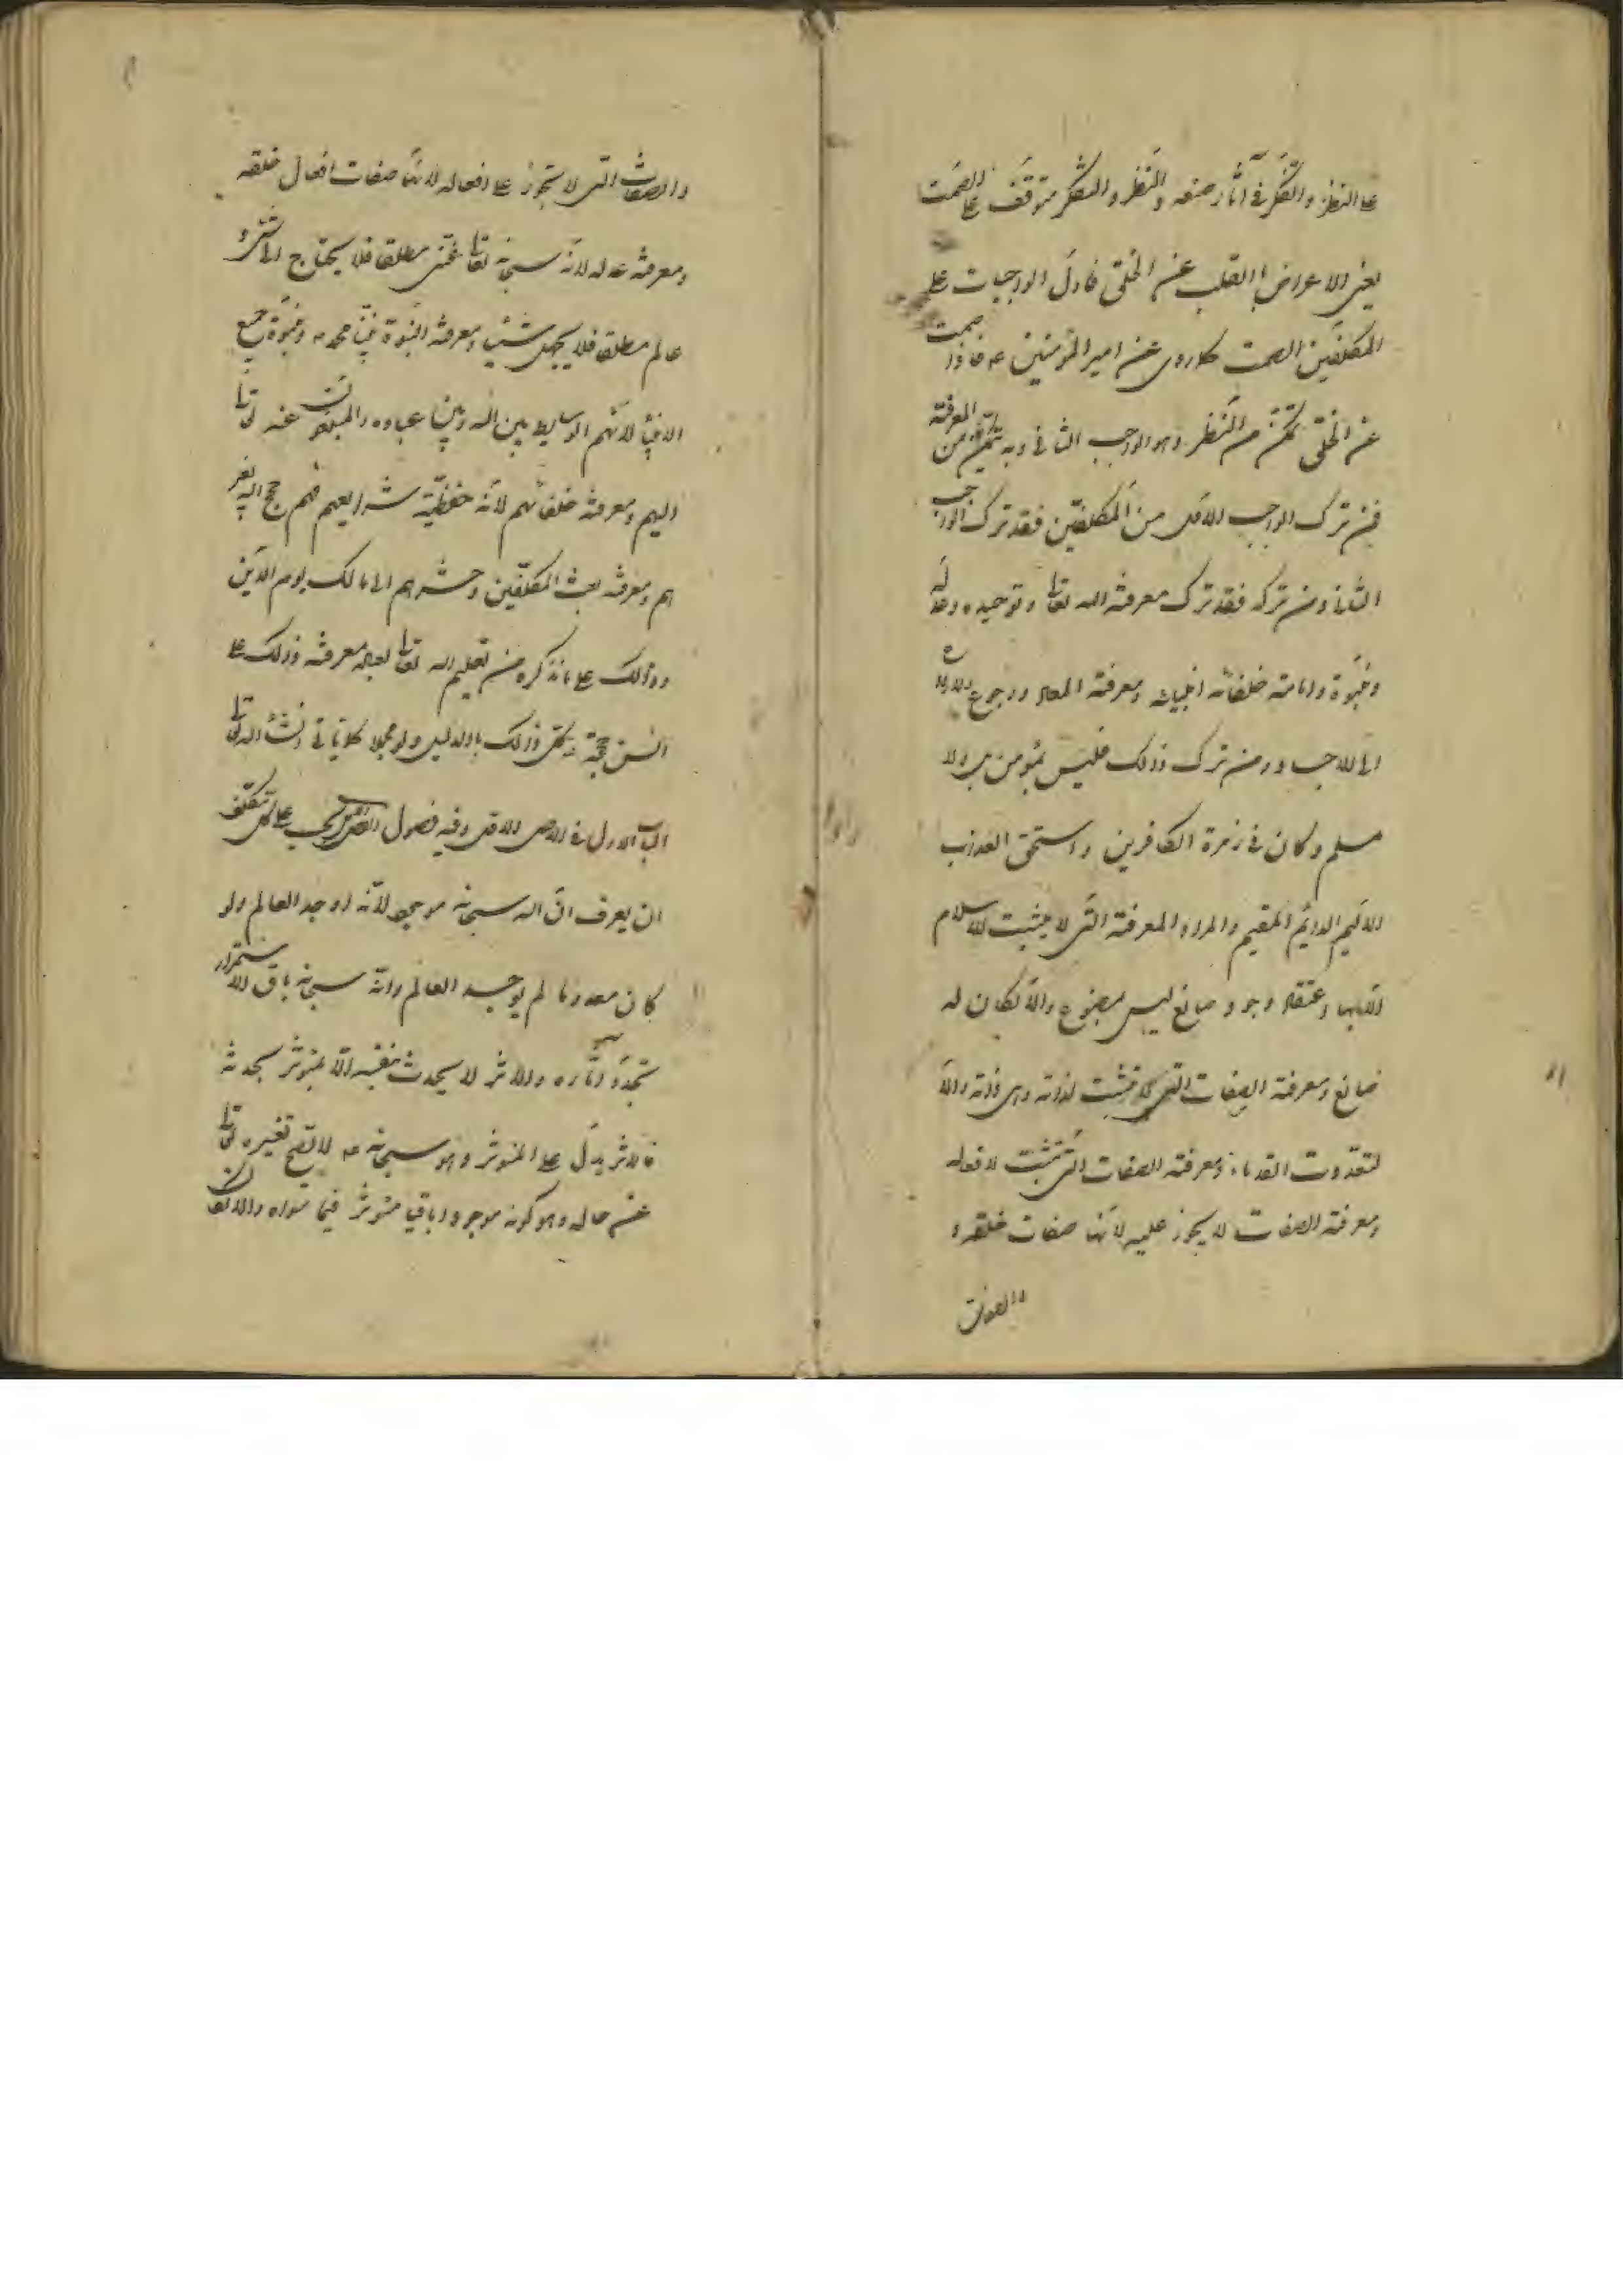 على النظر والتفكر في آثار صنعه والنظر والتفكر متوقف على الصمت
يعنى الاعراض بالقلب عن الخلق فاول الواجبات على
المكلفين الصمت كما روى عن امير المؤمنين ع فاذا صمت
عن الخلق تمكن من النظر وهو الواجب الثانى وبه يتمكن من المعرفة
فمن ترك الواجب الاول من المكلفين فقد ترك الواجب
الثانى ومن تركه فقد ترك معرفة الله تعا وتوحيده وعدله
ونبوة وامامة خلفائه انبيائه ومعرفة المعاد ورجوع الارواح
الى الاجساد ومن ترك ذلك فليس بمؤمن بل ولا
مسلم وكان في زمرة الكافرين واستحق العذاب
الاليم الدائم المقيم والمراد المعرفة التى لا يثبت الاسلام
الا بها اعتقاد وجود صانع ليس بمصنوع والا لكان له
صانع ومعرفة الصفات التى تثبت لذاته وهى ذاته والا
لتعددت القدماء ومعرفة الصفات التى تثبت لافعاله
ومعرفة الصفات لا يجوز عليه لانها صفات خلقه و
والصفات
والصفات التى لا تجوز على افعاله لانها صفات افعال خلقه
ومعرفة عدله لانه سبحانه تعا غنى مطلقا فلا يحتاج الى شئ و
عالم مطلقا فلا يجهل شيئا ومعرفة النبوة نبينا محمد ص ونبوة جميع
الانبياء لانهم الوسايط بين الله وبين عباده والمبلغون عنه تعا
اليهم ومعرفة خلفائهم لانه حفظة شرايعهم فهم حجج الله بعد
هم ومعرفة بعث المكلفين وحشرهم الى مالك يوم الدين
وذلك على ما نذكره من تعليم الله تعا لعباده معرفة ذلك على
السن حججه كل ذلك بالدليل ولو مجملا كما ياتى ان شاء الله تعا
الباب الاول في الاصل الاول وفيه فصول الفصل الاول يجب على كل مكلف
ان يعرف ان الله سبحانه موجود لانه اوجد العالم ولو
كان معدوما لم يوجد العالم وانه سبحانه باق لاستمرار
تجدد آثاره والاثر لا يحدث بنفسه الا بمؤثر يحدثه
فالاثر يدل على المؤثر وهو سبحانه لا يصح تغيره تعا
عن حاله وهو كونه موجودا باقيا مؤثر فيما سواه والا لكان